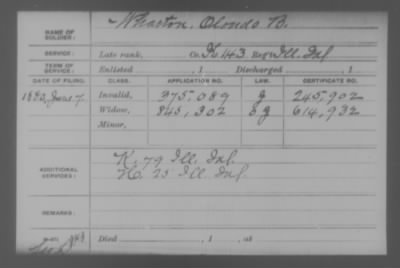 NAME OF SOLDIER: Wharton, Olondo B.
SERVICE: Late rank, Co. G. 143 Reg't Ill. Inf.
TERM OF SERVICE: Enlisted , 1 Discharged , 1
DATE OF FILING. CLASS. APPLICATION NO. LAW. CERTIFICATE NO.
1880, June 7 Invalid, 375,089 G 245,902
Widow, 845,302 G 614,932
Minor,
ADDITIONAL SERVICES: K. 79 Ill. Inf.
H. 25 Ill. Inf.
REMARKS:
Died , 1 , at